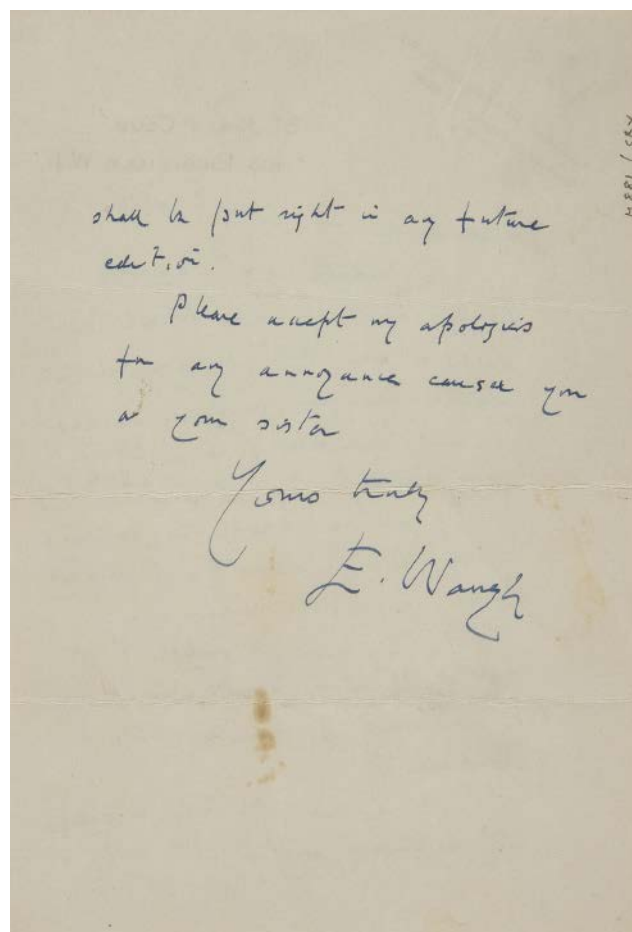 shall be put right in any future
edition.
Please accept my apologies
for any annoyance caused you
or your sister
Yours truly
E. Waugh